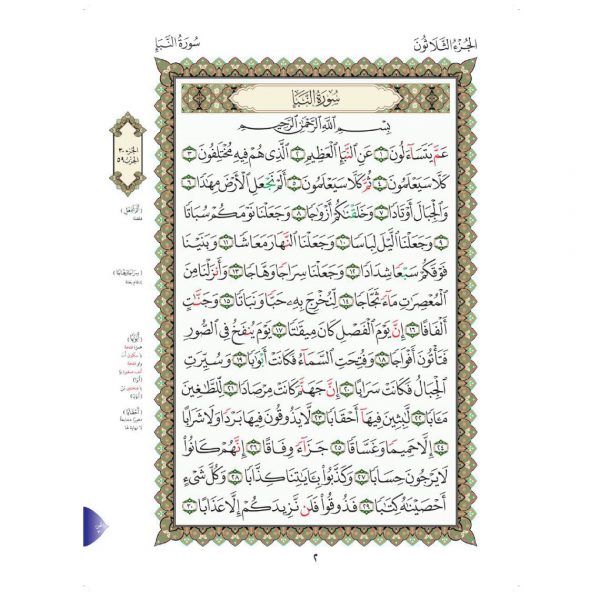 الجُزْءُ الثَّلَاثُونَ
سُورَةُ النَّبَإِ
سُورَةُ النَّبَإِ
بِسْمِ اللَّهِ الرَّحْمَٰنِ الرَّحِيمِ
عَمَّ يَتَسَآءَلُونَ ١ عَنِ النَّبَإِ الْعَظِيمِ ٢ الَّذِى هُمْ فِيهِ مُخْتَلِفُونَ ٣
كَلَّا سَيَعْلَمُونَ ٤ ثُمَّ كَلَّا سَيَعْلَمُونَ ٥ أَلَمْ نَجْعَلِ الْأَرْضَ مِهَٰدًا ٦
وَالْجِبَالَ أَوْتَادًا ٧ وَخَلَقْنَٰكُمْ أَزْوَٰجًا ٨ وَجَعَلْنَا نَوْمَكُمْ سُبَاتًا
٩ وَجَعَلْنَا الَّيْلَ لِبَاسًا ١٠ وَجَعَلْنَا النَّهَارَ مَعَاشًا ١١ وَبَنَيْنَا
فَوْقَكُمْ سَبْعًا شِدَادًا ١٢ وَجَعَلْنَا سِرَاجًا وَهَّاجًا ١٣ وَأَنزَلْنَا مِنَ
الْمُعْصِرَٰتِ مَآءً ثَجَّاجًا ١٤ لِّنُخْرِجَ بِهِۦ حَبًّا وَنَبَاتًا ١٥ وَجَنَّٰتٍ
أَلْفَافًا ١٦ إِنَّ يَوْمَ الْفَصْلِ كَانَ مِيقَٰتًا ١٧ يَوْمَ يُنفَخُ فِى الصُّورِ
فَتَأْتُونَ أَفْوَاجًا ١٨ وَفُتِحَتِ السَّمَآءُ فَكَانَتْ أَبْوَٰبًا ١٩ وَسُيِّرَتِ
الْجِبَالُ فَكَانَتْ سَرَابًا ٢٠ إِنَّ جَهَنَّمَ كَانَتْ مِرْصَادًا ٢١ لِّلطَّٰغِينَ
مَـَٔابًا ٢٢ لَّٰبِثِينَ فِيهَآ أَحْقَابًا ٢٣ لَّا يَذُوقُونَ فِيهَا بَرْدًا وَلَا شَرَابًا
٢٤ إِلَّا حَمِيمًا وَغَسَّاقًا ٢٥ جَزَآءً وِفَاقًا ٢٦ إِنَّهُمْ كَانُوا۟
لَا يَرْجُونَ حِسَابًا ٢٧ وَكَذَّبُوا۟ بِـَٔايَٰتِنَا كِذَّابًا ٢٨ وَكُلَّ شَىْءٍ
أَحْصَيْنَٰهُ كِتَٰبًا ٢٩ فَذُوقُوا۟ فَلَن نَّزِيدَكُمْ إِلَّا عَذَابًا ٣٠
الجزء ٣٠
الحزب ٥٩
٢